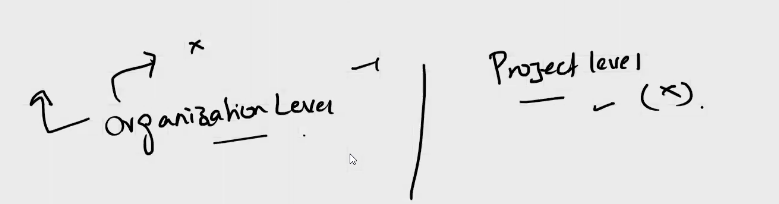 x
Organization Level
Project level
(x).